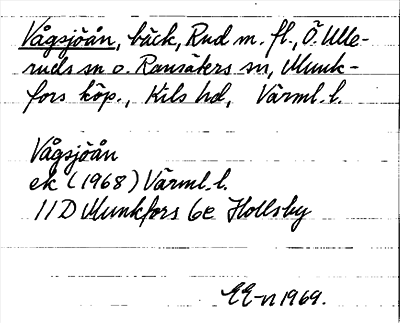 Vågsjöån, bäck, Rud m. fl., Ö. Ulle-
ruds sn o. Ransäters sn, Munk-
fors köp., Kils hd, Värml. l.
Vågsjöån
ek (1968) Värml. l.
11D Munkfors 6e Hollsby
EE-n 1969.